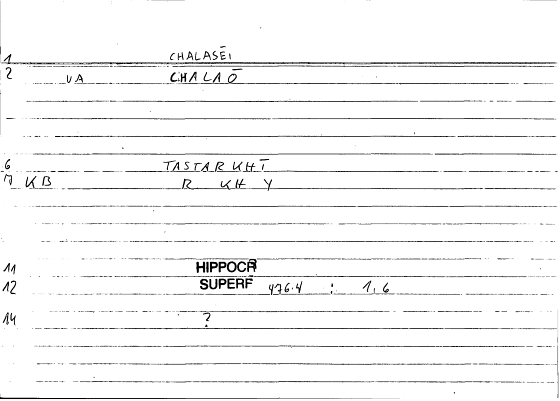 1 CHALASĒI
2 VA CHALAŌ
6 TASTAR KHĪ
7 KB R KH Y
11 HIPPOCR
12 SUPERF 476.4 : 1,6
14 ?